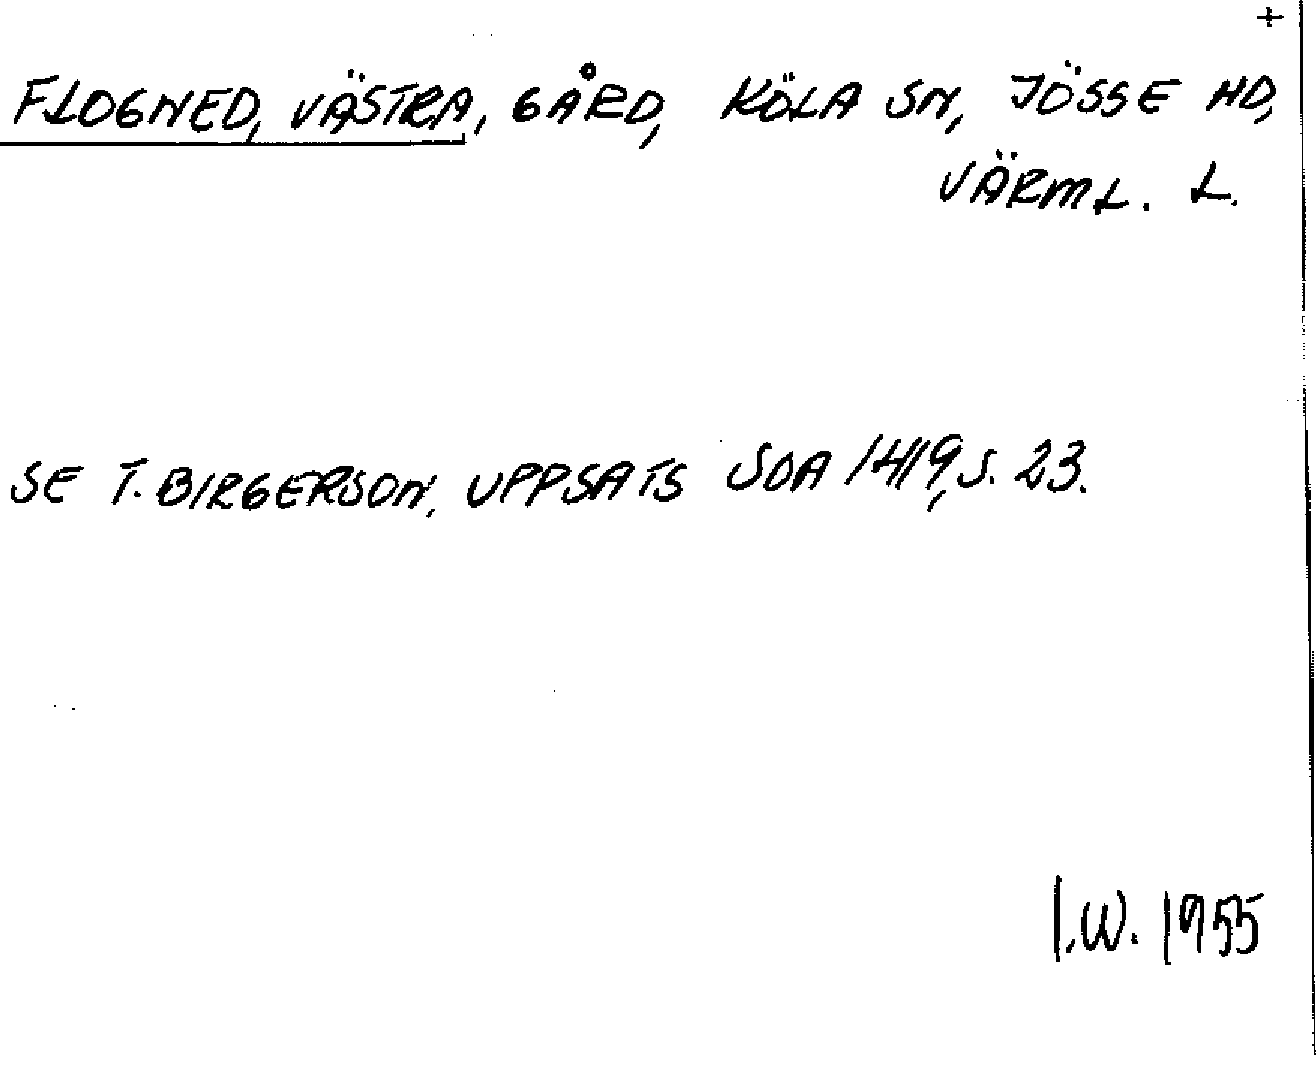 +
FLOGNED, VÄSTRA, GÅRD, KÖLA SN, JÖSSE HD,
VÄRML. L.
SE T. BIRGERSON, UPPSATS SOA 1419, S. 23.
I.W. 1955